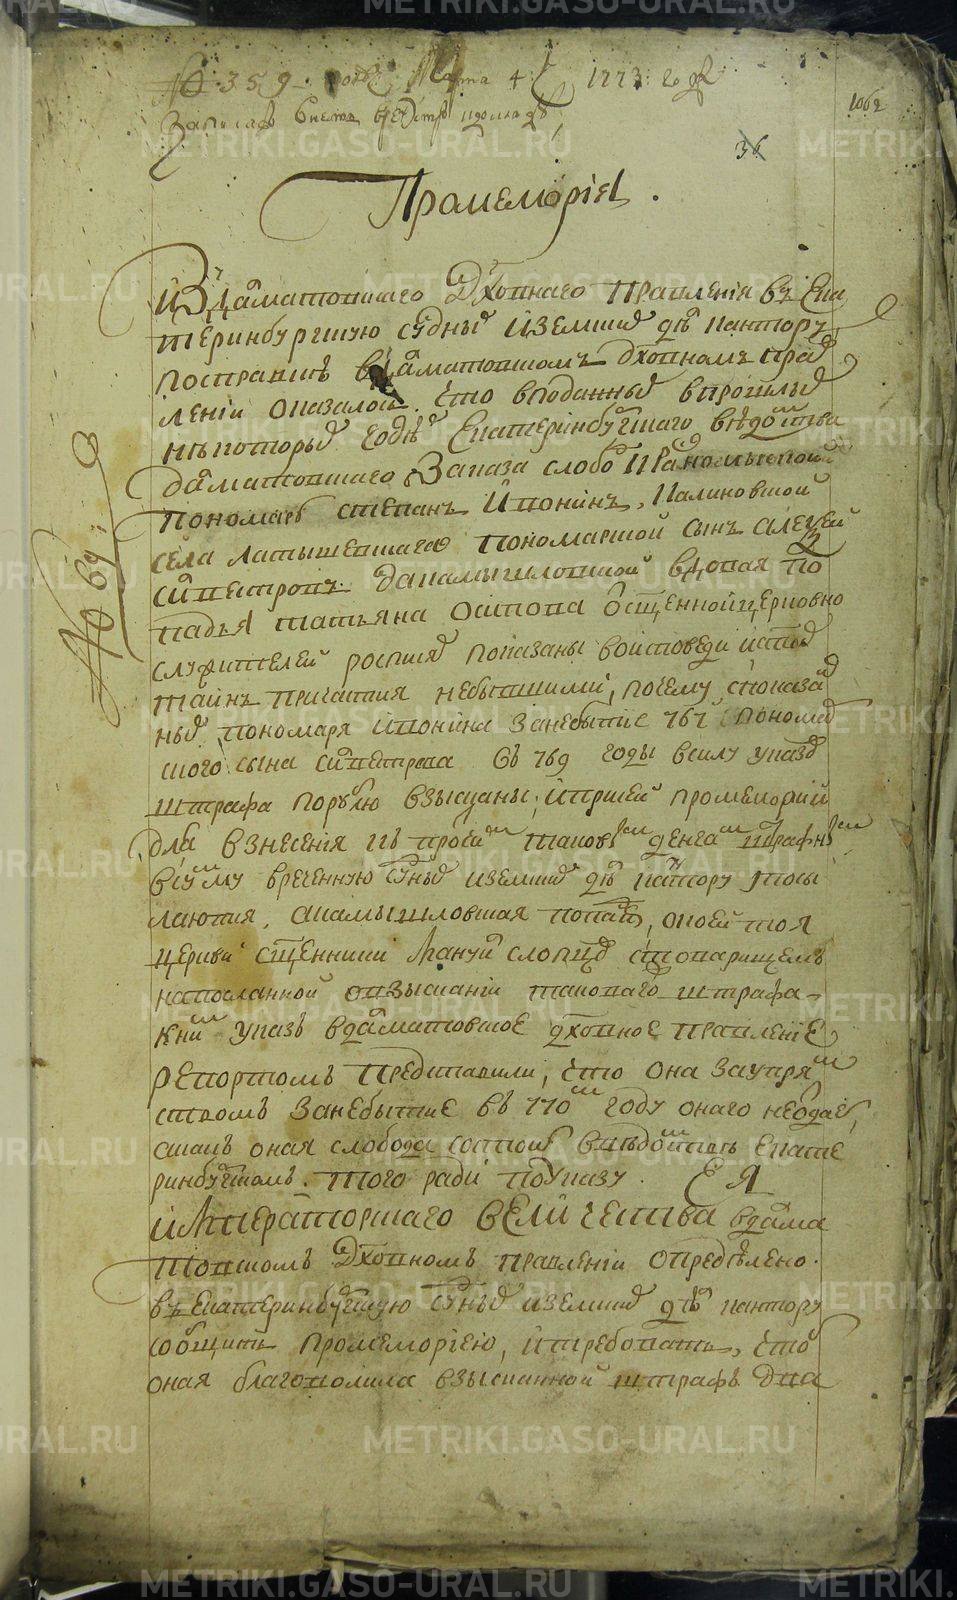 № 359. подан Марта 4 1773 году
Записавъ
1062
36
Промеморiя.
Из Далматовскаго Дховнаго Правленiя въ Ека
теринбургскую судных и земских дѣлъ кантору
по справкѣ в Далматовском дховномъ прав
ленiи оказалось что в поданных в прошлых
некоторых годѣх Екатеринбургскаго вѣдомства
Далматовскаго Заказа слобод
пономарь степанъ Iконинъ, Калиновской
села латышевскаго пономарской сынъ алексей
силвестровъ да камышловской вдовая по
падья татьяна осипова о сщенноцерковно
служителей росписях показаны во исповеди и стых
таинъ причастия небывшими, почему с показан
ных пономаря iконина за небытие 767 с пономар
ского сына силвестрова въ 769 годы в силу указов
штрафа по рублю взысканы, и при сей промеморiи
для взнесения къ протчим таковым денгам штрафным
в сумму в реченную судных и земских дѣлъ кантору посы
лаются, а камышловская попадья, о коей тоя
церкви сщенники Мануил слопцов с товарищемъ
на посланной о взысканiи таковаго штрафа
к ним указъ в далматовское дховное правленiе
репортомъ представили, что она за упрям
ствомъ за небытие въ 770м году онаго не отдает,
а какъ оная слобода состоит в вѣдомствѣ екате
ринбургскомъ. того ради по указу ЕЯ
IМператорскаго ВЕЛИЧЕства в далма
товскомъ Дховномъ правленiи опредѣлено.
въ Екатеринбургскую судных и земских дѣлъ кантору
сообщить промеморiею, и требовать, что б
оная благоволила взысканной штрафъ два
№ 69
METRIKI.GASO-URAL.RU